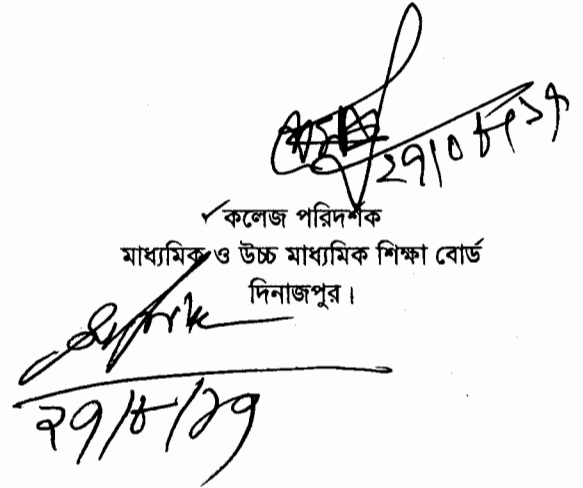 ২৭/০৮/১৭
✓ কলেজ পরিদর্শক
মাধ্যমিক ও উচ্চ মাধ্যমিক শিক্ষা বোর্ড
দিনাজপুর।
২৭/৮/১৭